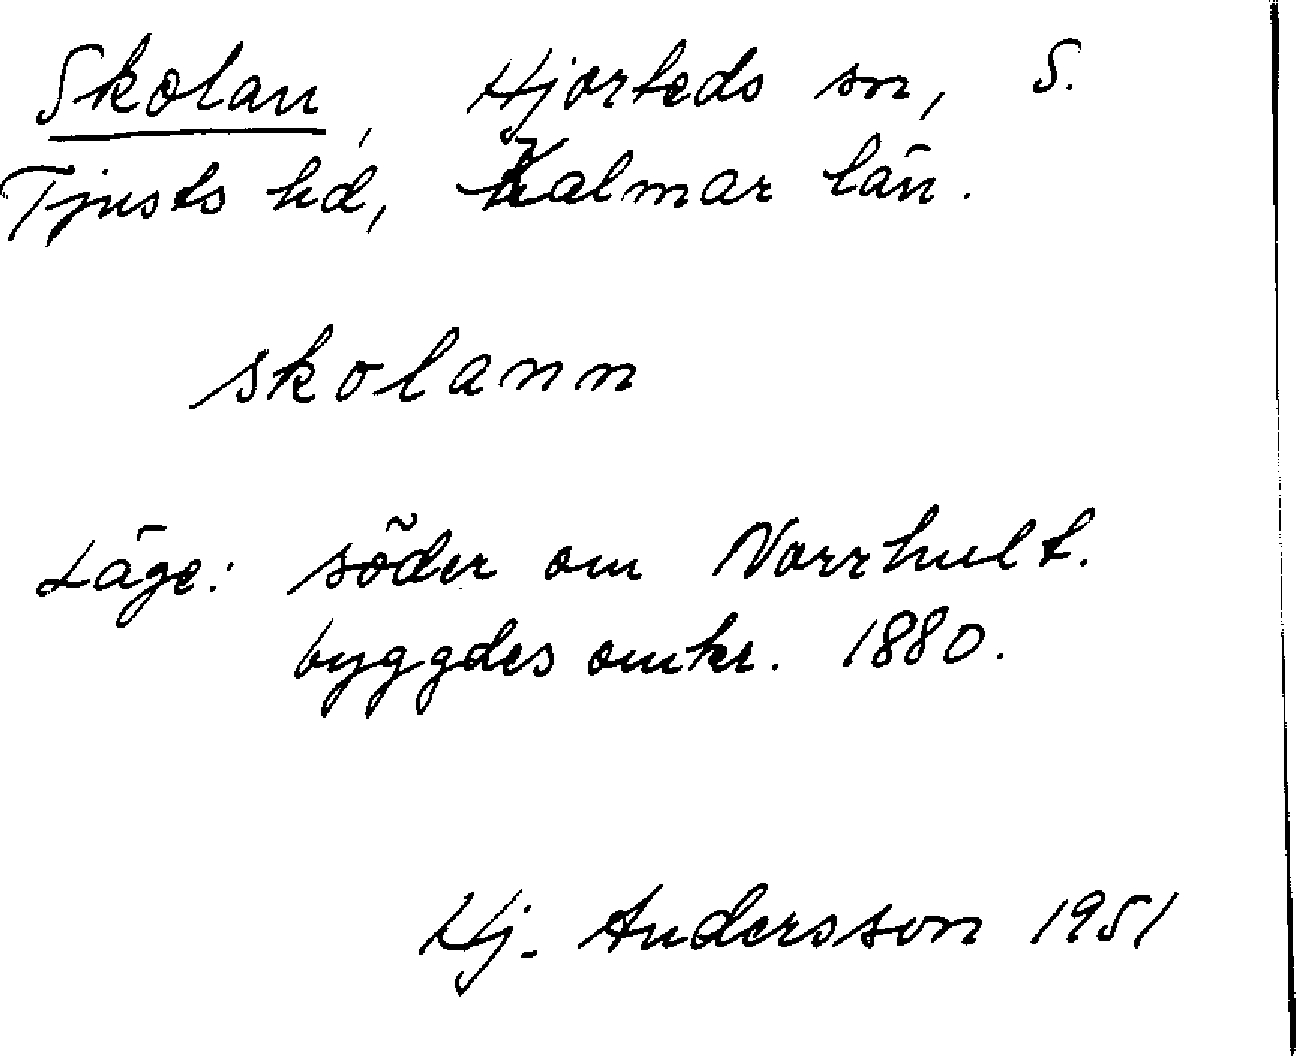 Skolan, Hjorteds sn, S.
Tjusts hd, Kalmar län.
skolann
Läge: söder om Norrhult.
byggdes omkr. 1880.
Hj. Andersson 1951